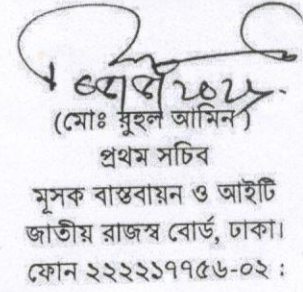 (মোঃ রুহুল আমিন)
প্রথম সচিব
মূসক বাস্তবায়ন ও আইটি
জাতীয় রাজস্ব বোর্ড, ঢাকা।
ফোন ২২২২১৭৭৫৬-০২ :